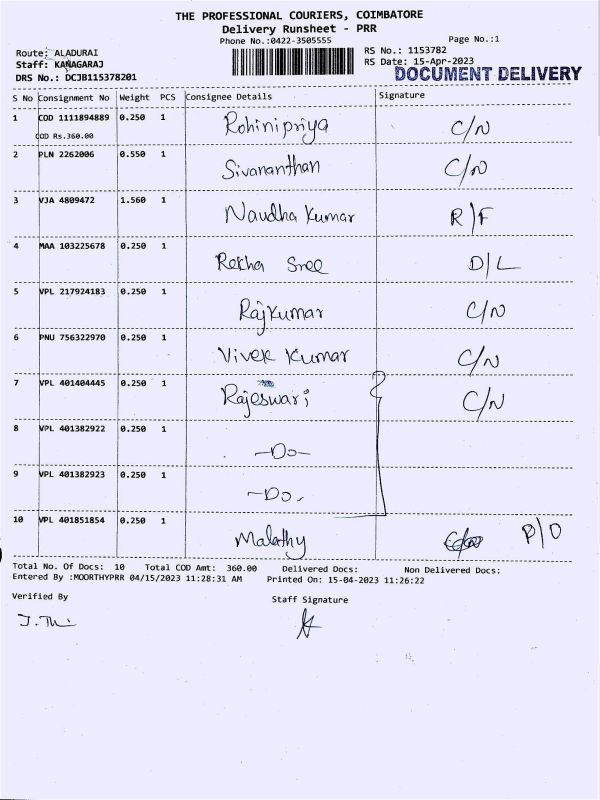 THE PROFESSIONAL COURIERS, COIMBATORE
Delivery Runsheet - PRR
Phone No.:0422-3505555 Page No.:1
Route: ALADURAI RS No.: 1153782
Staff: KANAGARAJ RS Date: 15-Apr-2023
DRS No.: DCJB115378201 DOCUMENT DELIVERY
S No Consignment No Weight PCS Consignee Details Signature
1 COD 1111894889 0.250 1 Rohinipriya C/N
COD Rs.360.00
2 PLN 2262006 0.550 1 Sivananthan C/N
3 VJA 4809472 1.560 1 Naudha Kumar R/F
4 MAA 103225678 0.250 1 Rekha Sree D/L
5 VPL 217924183 0.250 1 Rajkumar C/N
6 PNU 756322970 0.250 1 Vivek Kumar C/N
7 VPL 401404445 0.250 1 Rajeswari C/N
8 VPL 401382922 0.250 1 -Do-
9 VPL 401382923 0.250 1 -Do-
10 VPL 401851854 0.250 1 Malathy P/O
Total No. Of Docs: 10 Total COD Amt: 360.00 Delivered Docs: Non Delivered Docs:
Entered By :MOORTHYPRR 04/15/2023 11:28:31 AM Printed On: 15-04-2023 11:26:22
Verified By Staff Signature